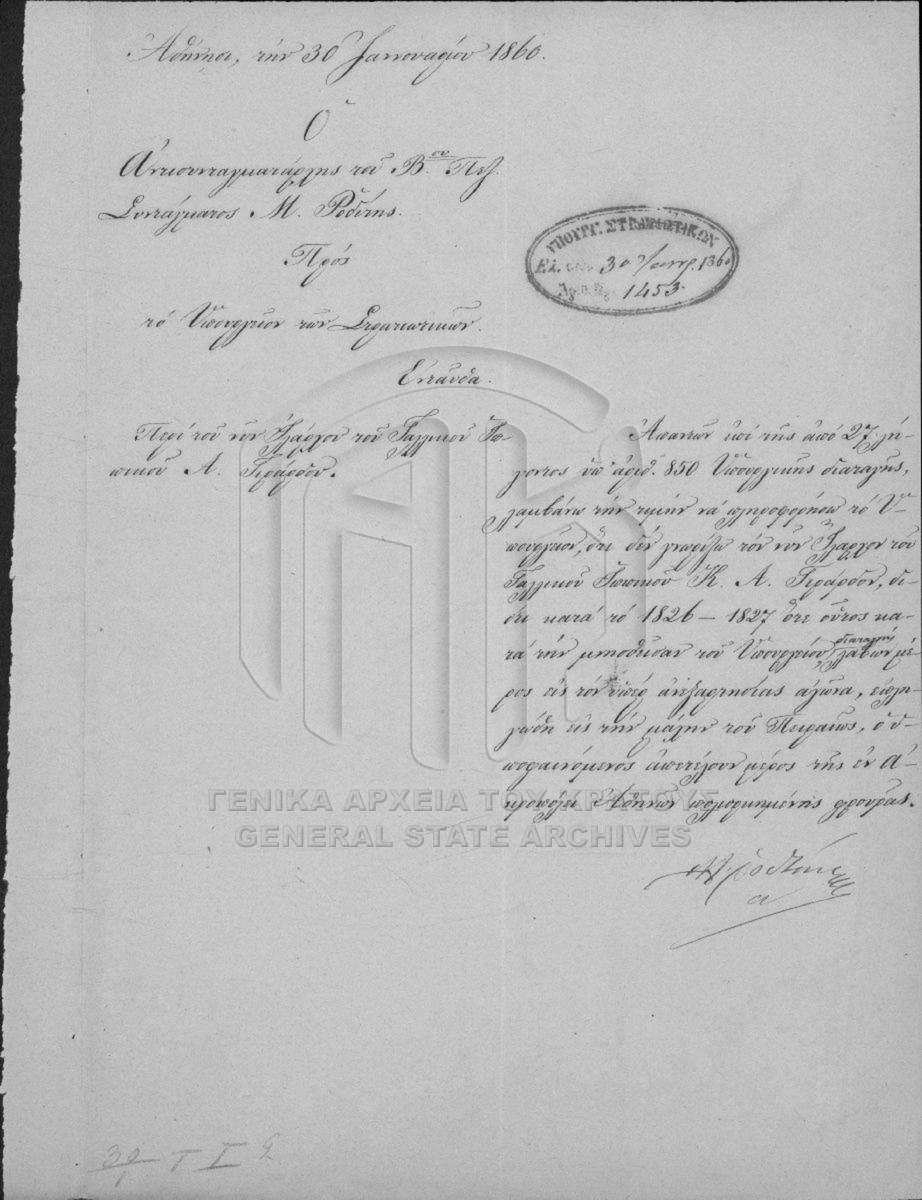 Ἀθήνησι, τὴν 30 Ἰαννουαρίου 1860.
Ὁ
Ἀντισυνταγματάρχης τοῦ Β.ου Πεζ.
Συντάγματος Μ. Ροδίτης.
Πρὸς
τὸ Ὑπουργεῖον τῶν Στρατιωτικῶν.
Ἐνταῦθα.
ΥΠΟΥΡΓ. ΣΤΡΑΤΙΩΤΙΚΩΝ
30 Ἰανρ. 1860
1453.
Περὶ τοῦ νῦν Ἰλάρχου τοῦ Γαλλικοῦ Ἱπ-
πικοῦ Α. Γιράρδου.
Ἀπαντῶν ἐπὶ τῆς ἀπὸ 27 λή-
γοντος ὑπ' ἀριθ. 850 Ὑπουργικῆς διαταγῆς,
λαμβάνω τὴν τιμὴν νὰ πληροφορήσω τὸ Ὑ-
πουργεῖον, ὅτι δὲν γνωρίζω τὸν νῦν Ἴλαρχον τοῦ
Γαλλικοῦ Ἱππικοῦ Κ. Α. Γιράρδον, δι-
ότι κατὰ τὸ 1826 – 1827 ὅτε οὗτος κα-
τὰ τὴν μνησθεῖσαν τοῦ Ὑπουργείου διαταγὴν λαβὼν μέ-
ρος εἰς τὸν ὑπὲρ ἀνεξαρτησίας ἀγῶνα, ἐπλη-
γώθη εἰς τὴν μάχην τοῦ Πειραιῶς, ὁ ὑ-
ποφαινόμενος ἀπετέλουν μέρος τῆς ἐν Ἀ-
κροπόλει Ἀθηνῶν πολιορκημένης φρουρᾶς.
ΓΕΝΙΚΑ ΑΡΧΕΙΑ ΤΟΥ ΚΡΑΤΟΥΣ
GENERAL STATE ARCHIVES